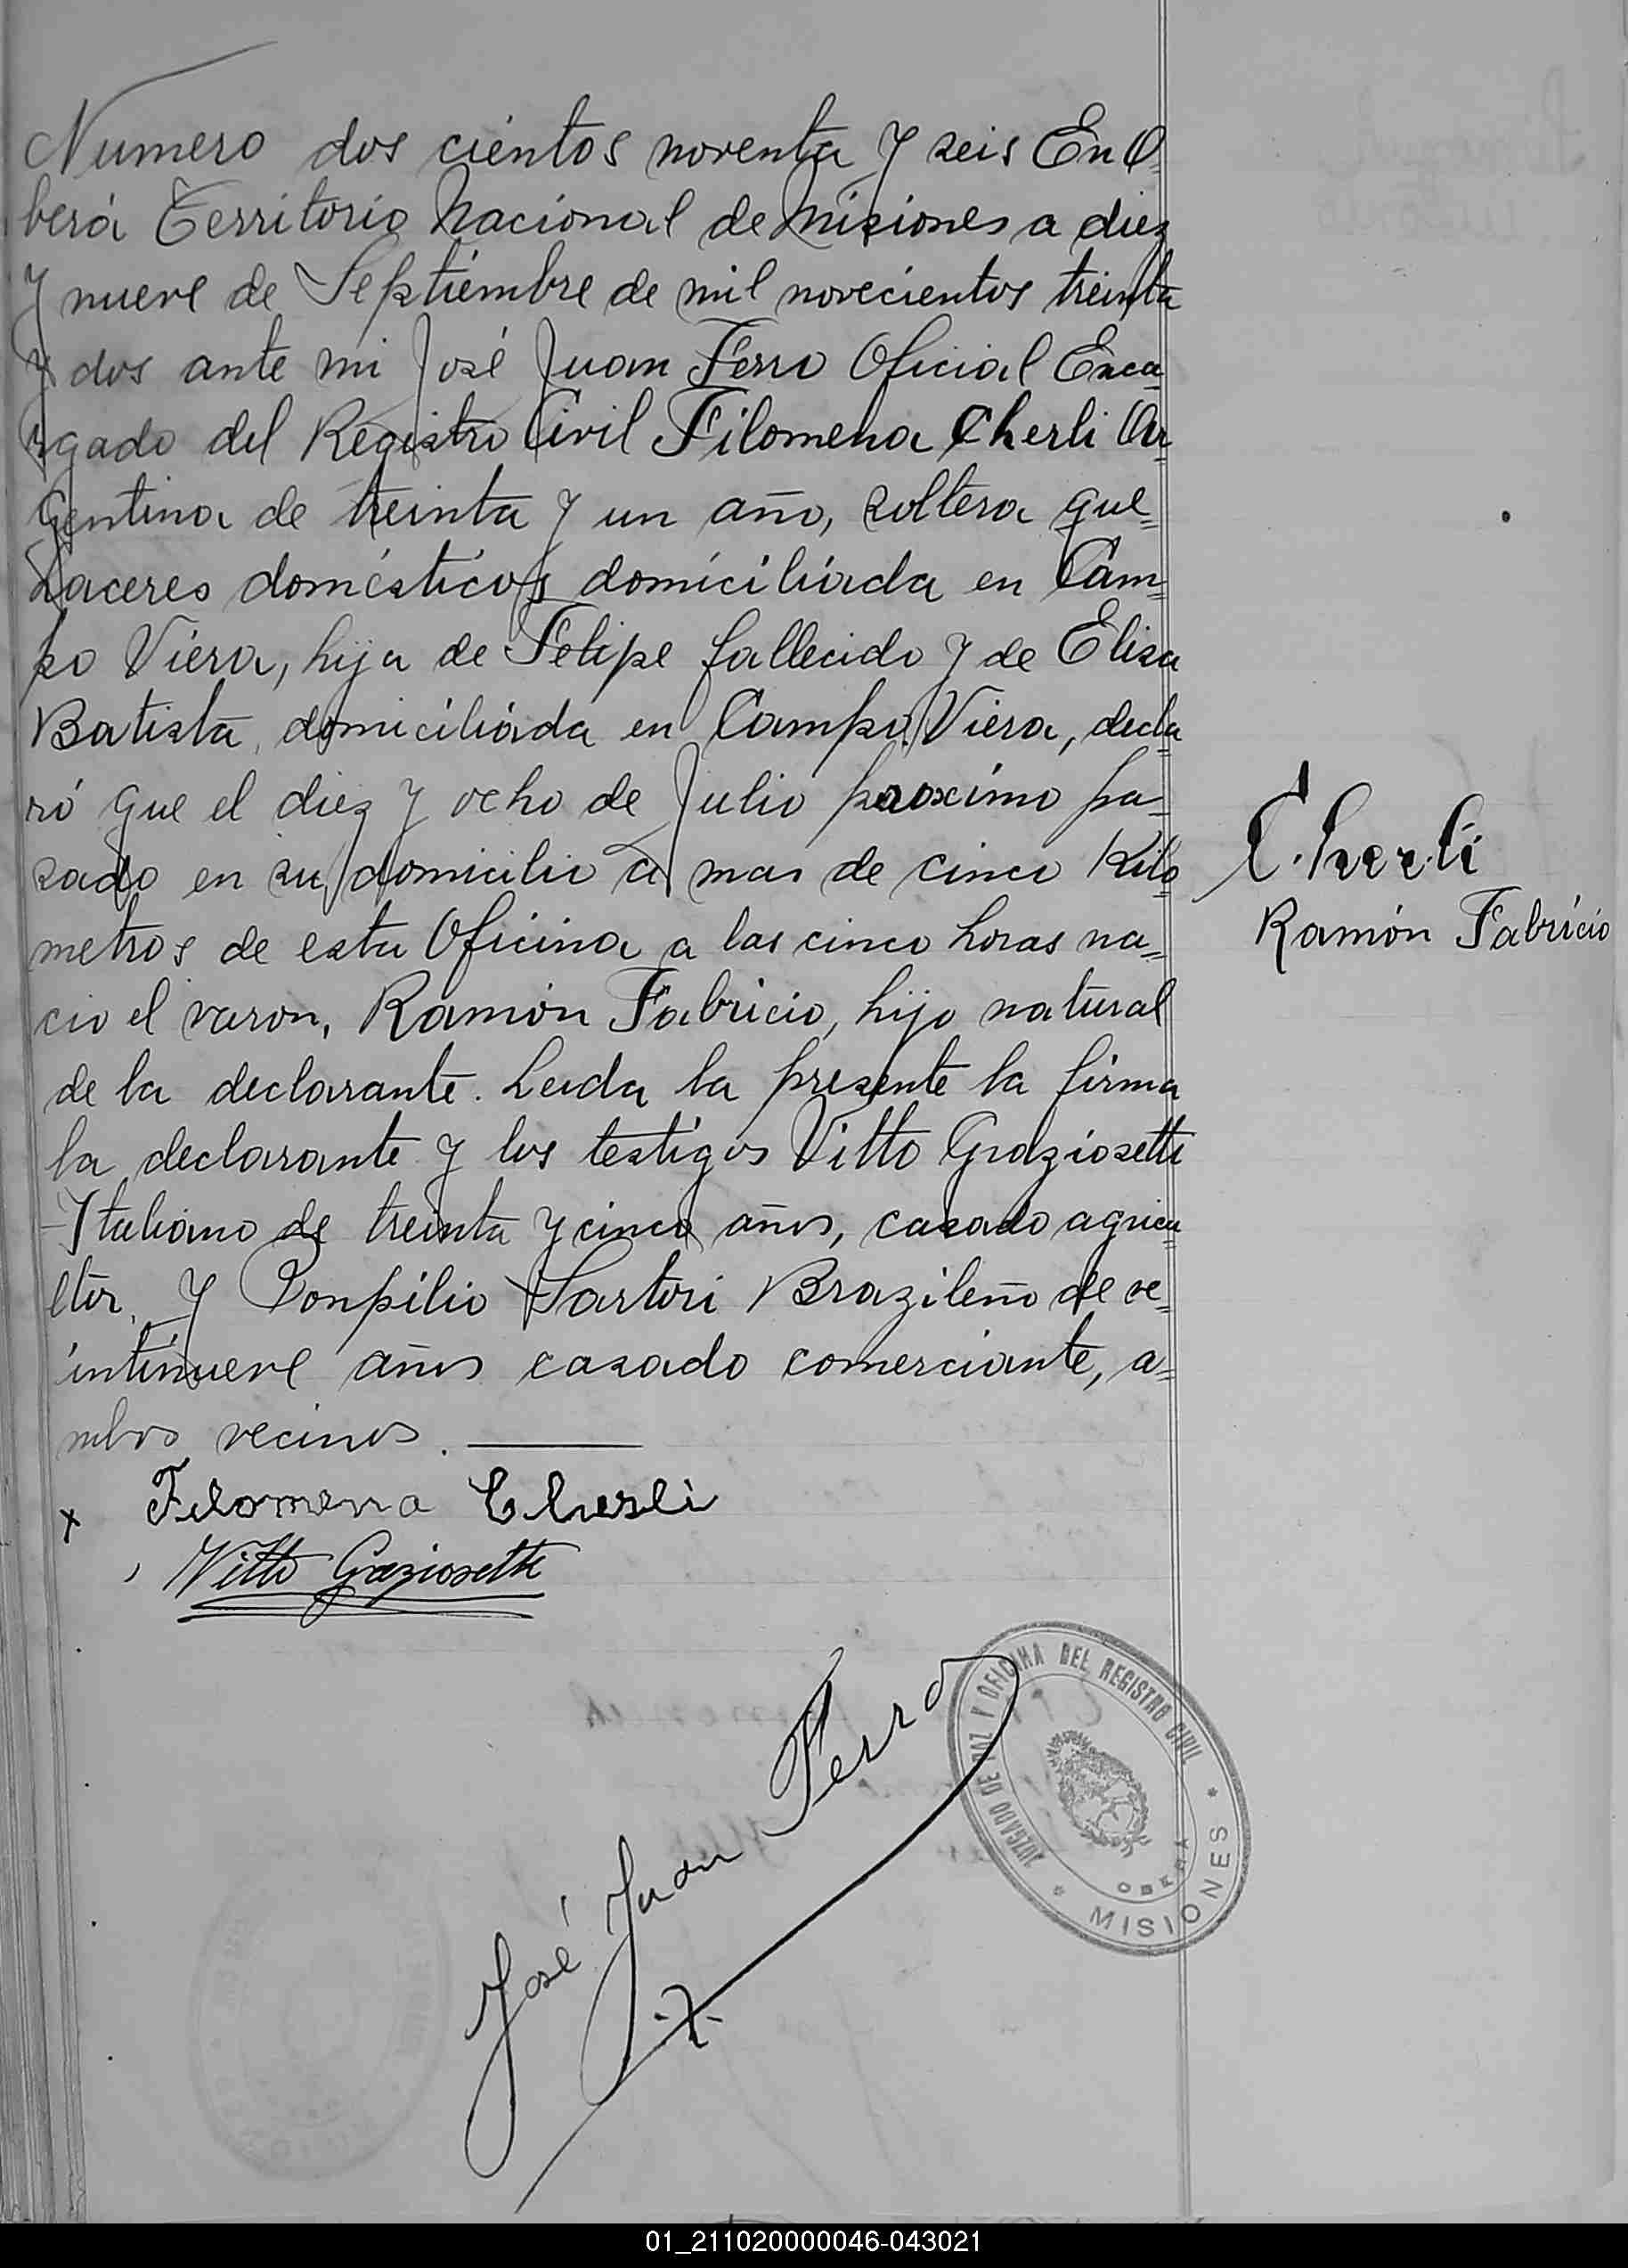 Numero dos cientos noventa y seis En O=
berá Territorio Nacional de Misiones a diez
y nueve de Septiembre de mil novecientos treinta
y dos ante mi José Juan Ferro Oficial Enca=
rgado del Registro Civil Filomena Cherli Ar
gentina de treinta y un año, soltera que=
haceres domésticos domiciliada en Cam=
po Viera, hija de Felipe fallecido y de Elisa
Batista, domiciliada en Campo Viera, decla
ró que el diez y ocho de Julio proximo pa=
sado en su domicilio a mas de cinco Kilo=
metros de esta Oficina a las cinco horas na=
cio el varon, Ramón Fabricio, hijo natural
de la declarante. Leida la presente la firma
la declarante y los testigos Vitto Graziosetti
Italiano de treinta y cinco años, casado agricu=
ltor, y Ponpilio Sartori Brazileño de ve=
intinueve años casado comerciante, a=
mbos vecinos.
x Filomena Cherli
Vitto Graziosetti
José Juan Ferro
Cherli
Ramón Fabricio
JUZGADO DE PAZ Y OFICINA DEL REGISTRO CIVIL
OBERA
* MISIONES *
01_211020000046-043021